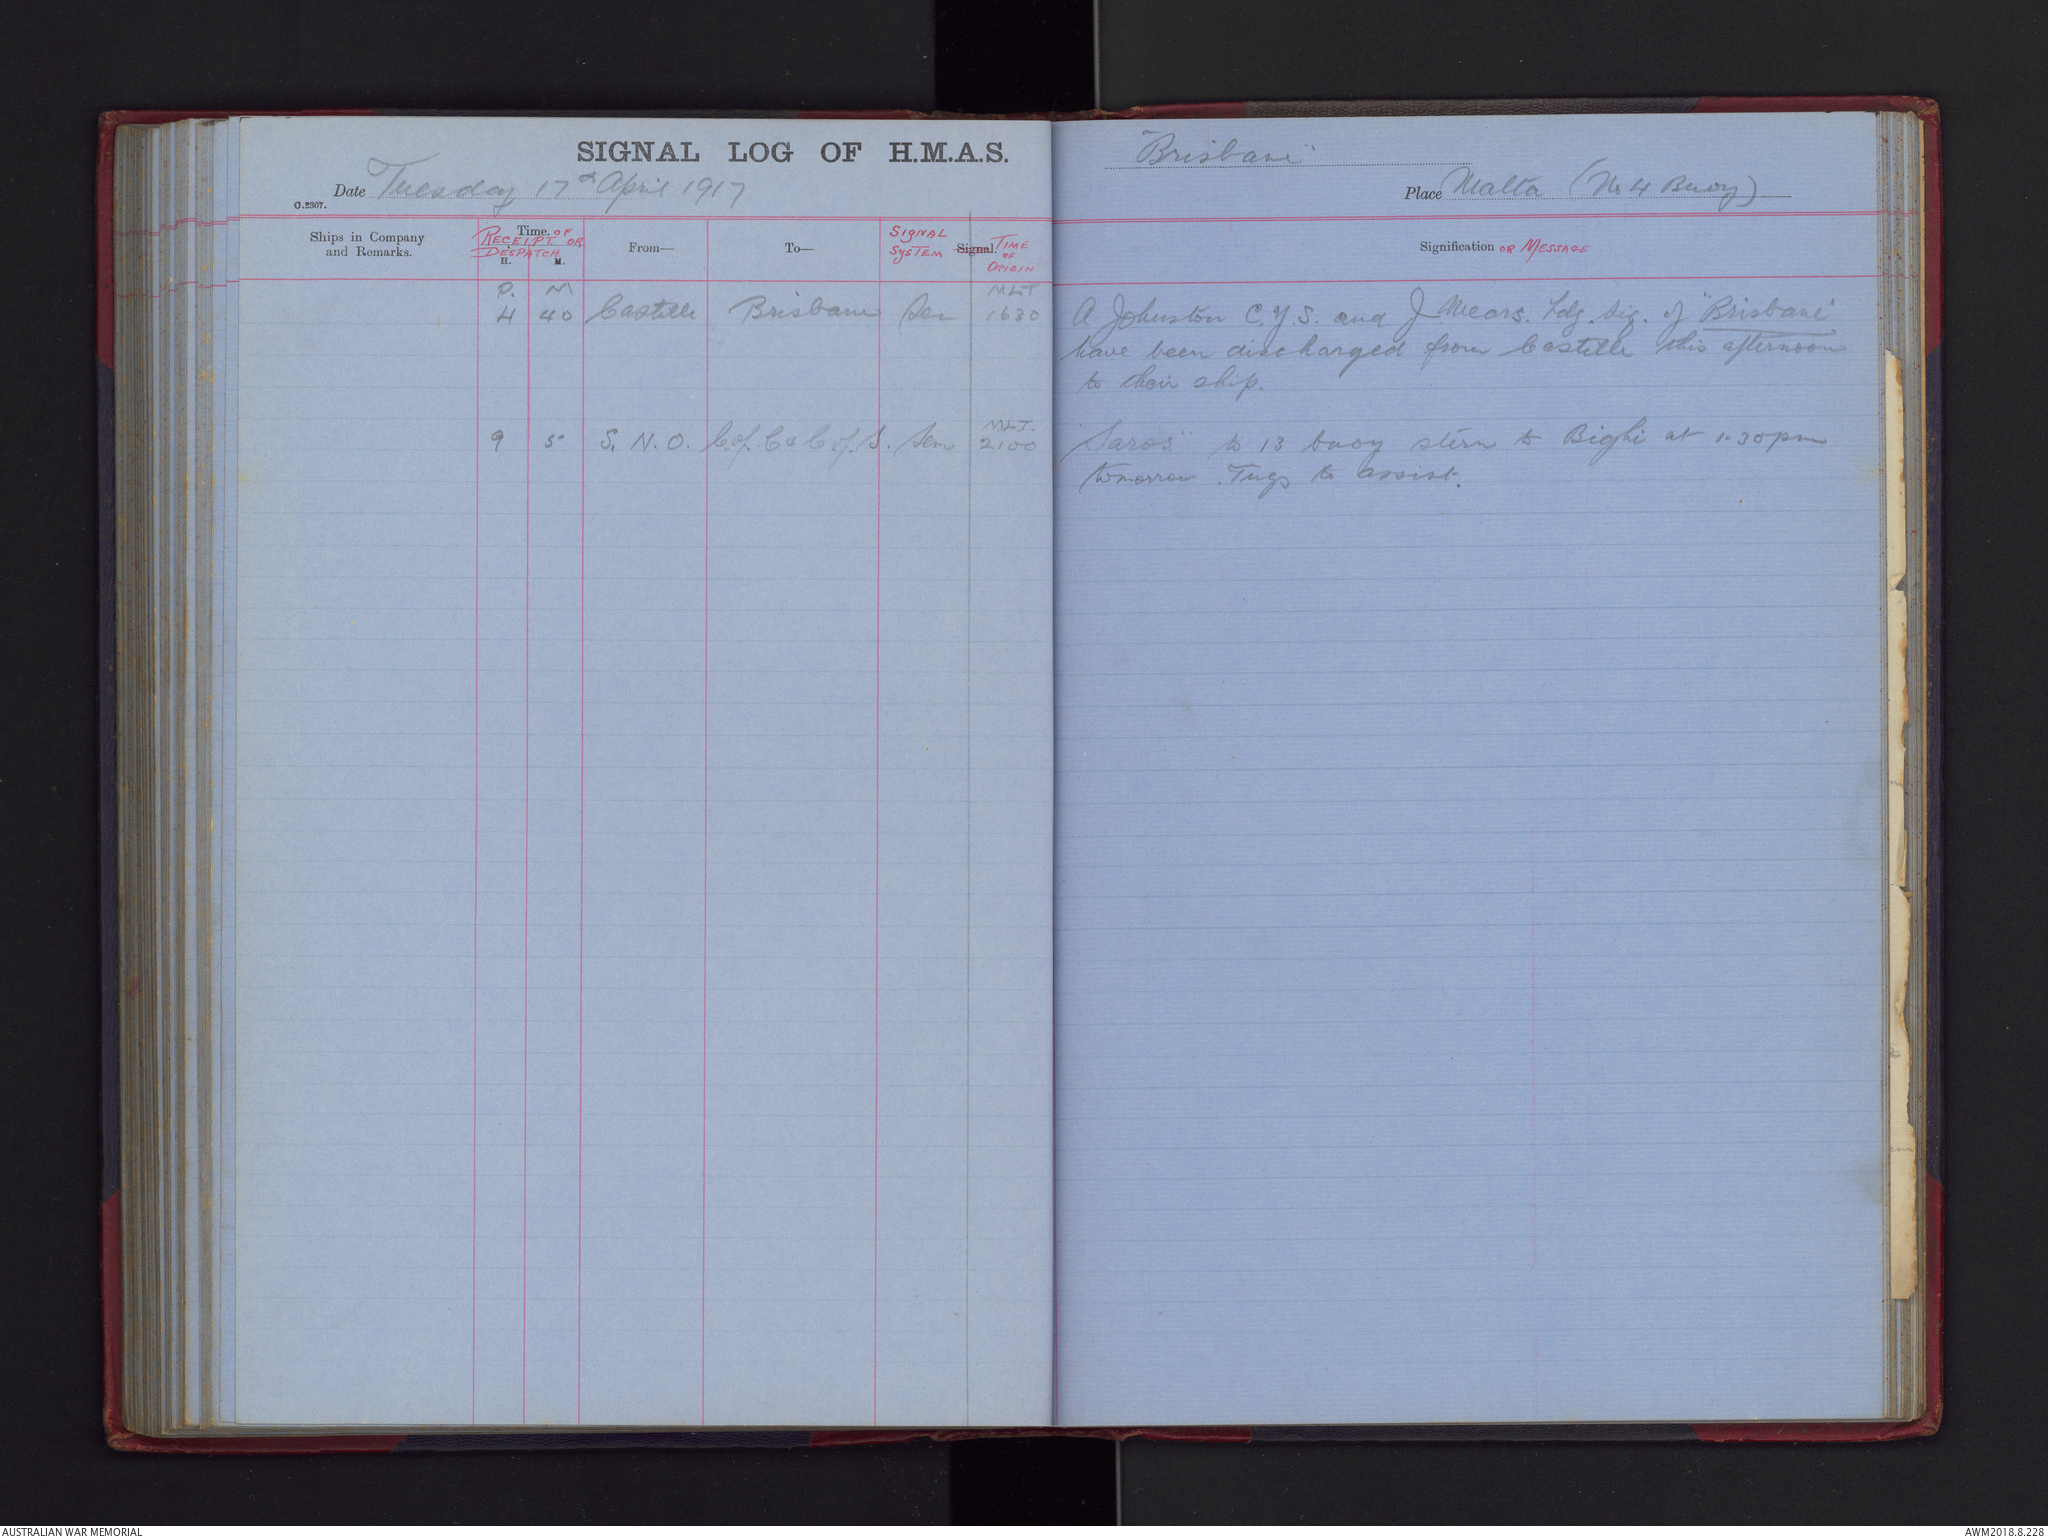 SIGNAL LOG OF H.M.A.S. "Brisbane"
Date Tuesday 17th April 1917 Place Malta (No 4 Buoy)
O.2367.
Ships in Company and Remarks. Time. OF RECEIPT OR DESPATCH H. M. From— To— SIGNAL SYSTEM Signal. TIME OF ORIGIN Signification OR MESSAGE
P. M MLT
4 40 Castille Brisbane Sem 1630 A Johnston C.Y.S. and J Mears. Ldg. Sig. of "Brisbane"
have been discharged from Castille this afternoon
to their ship.
MLT.
9 5 S. N. O. C. of C & C of S. Sem 2100 "Saros" to 13 buoy stern to Bighi at 1.30pm
tomorrow. Tugs to assist.
AUSTRALIAN WAR MEMORIAL
AWM2018.8.228